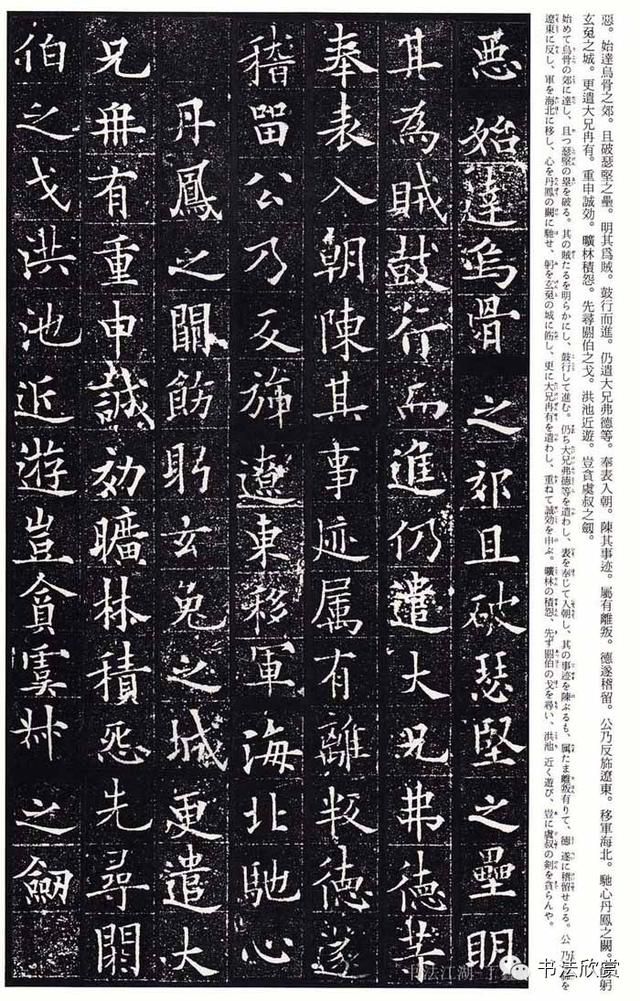 惡。始達烏骨之郊。且破瑟堅之壘。明其爲賊。鼓行而進。仍遣大兄弗德等。奉表入朝。陳其事迹。屬有離叛。德遂稽留。公乃反旆遼東。移軍海北。馳心丹鳳之闕。飭躬
玄菟之城。更遣大兄冉有。重申誠効。曠林積怨。先尋閼伯之戈。洪池近遊。豈貪虞叔之劒。
始めて烏骨の郊に達し、且つ瑟堅の壘を破る。其の賊たるを明らかにし、鼓行して進む。仍ち大兄弗德等を遣わし、表を奉じて入朝し、其の事迹を陳ぶるも、属たま離叛有りて、德遂に稽留せらる。公乃ち旆を
遼東に反し、軍を海北に移し、心を丹鳳の闕に馳せ、躬を玄菟の城に飭し、更に大兄冉有を遣わし、重ねて誠効を申ぶ。曠林の積怨、先ず閼伯の戈を尋い、洪池近く遊び、豈に虞叔の剣を貪らんや。
惡始達烏骨之郊且破瑟堅之壘明
其為賊鼓行而進仍遣大兄弗德等
奉表入朝陳其事迹属有離叛德遂
稽留公乃反旆遼東移軍海北馳心
丹鳳之闕飭躬玄菟之城更遣大
兄冉有重申誠効曠林積怨先尋閼
伯之戈洪池近遊豈貪虞叔之劒
书法欣赏